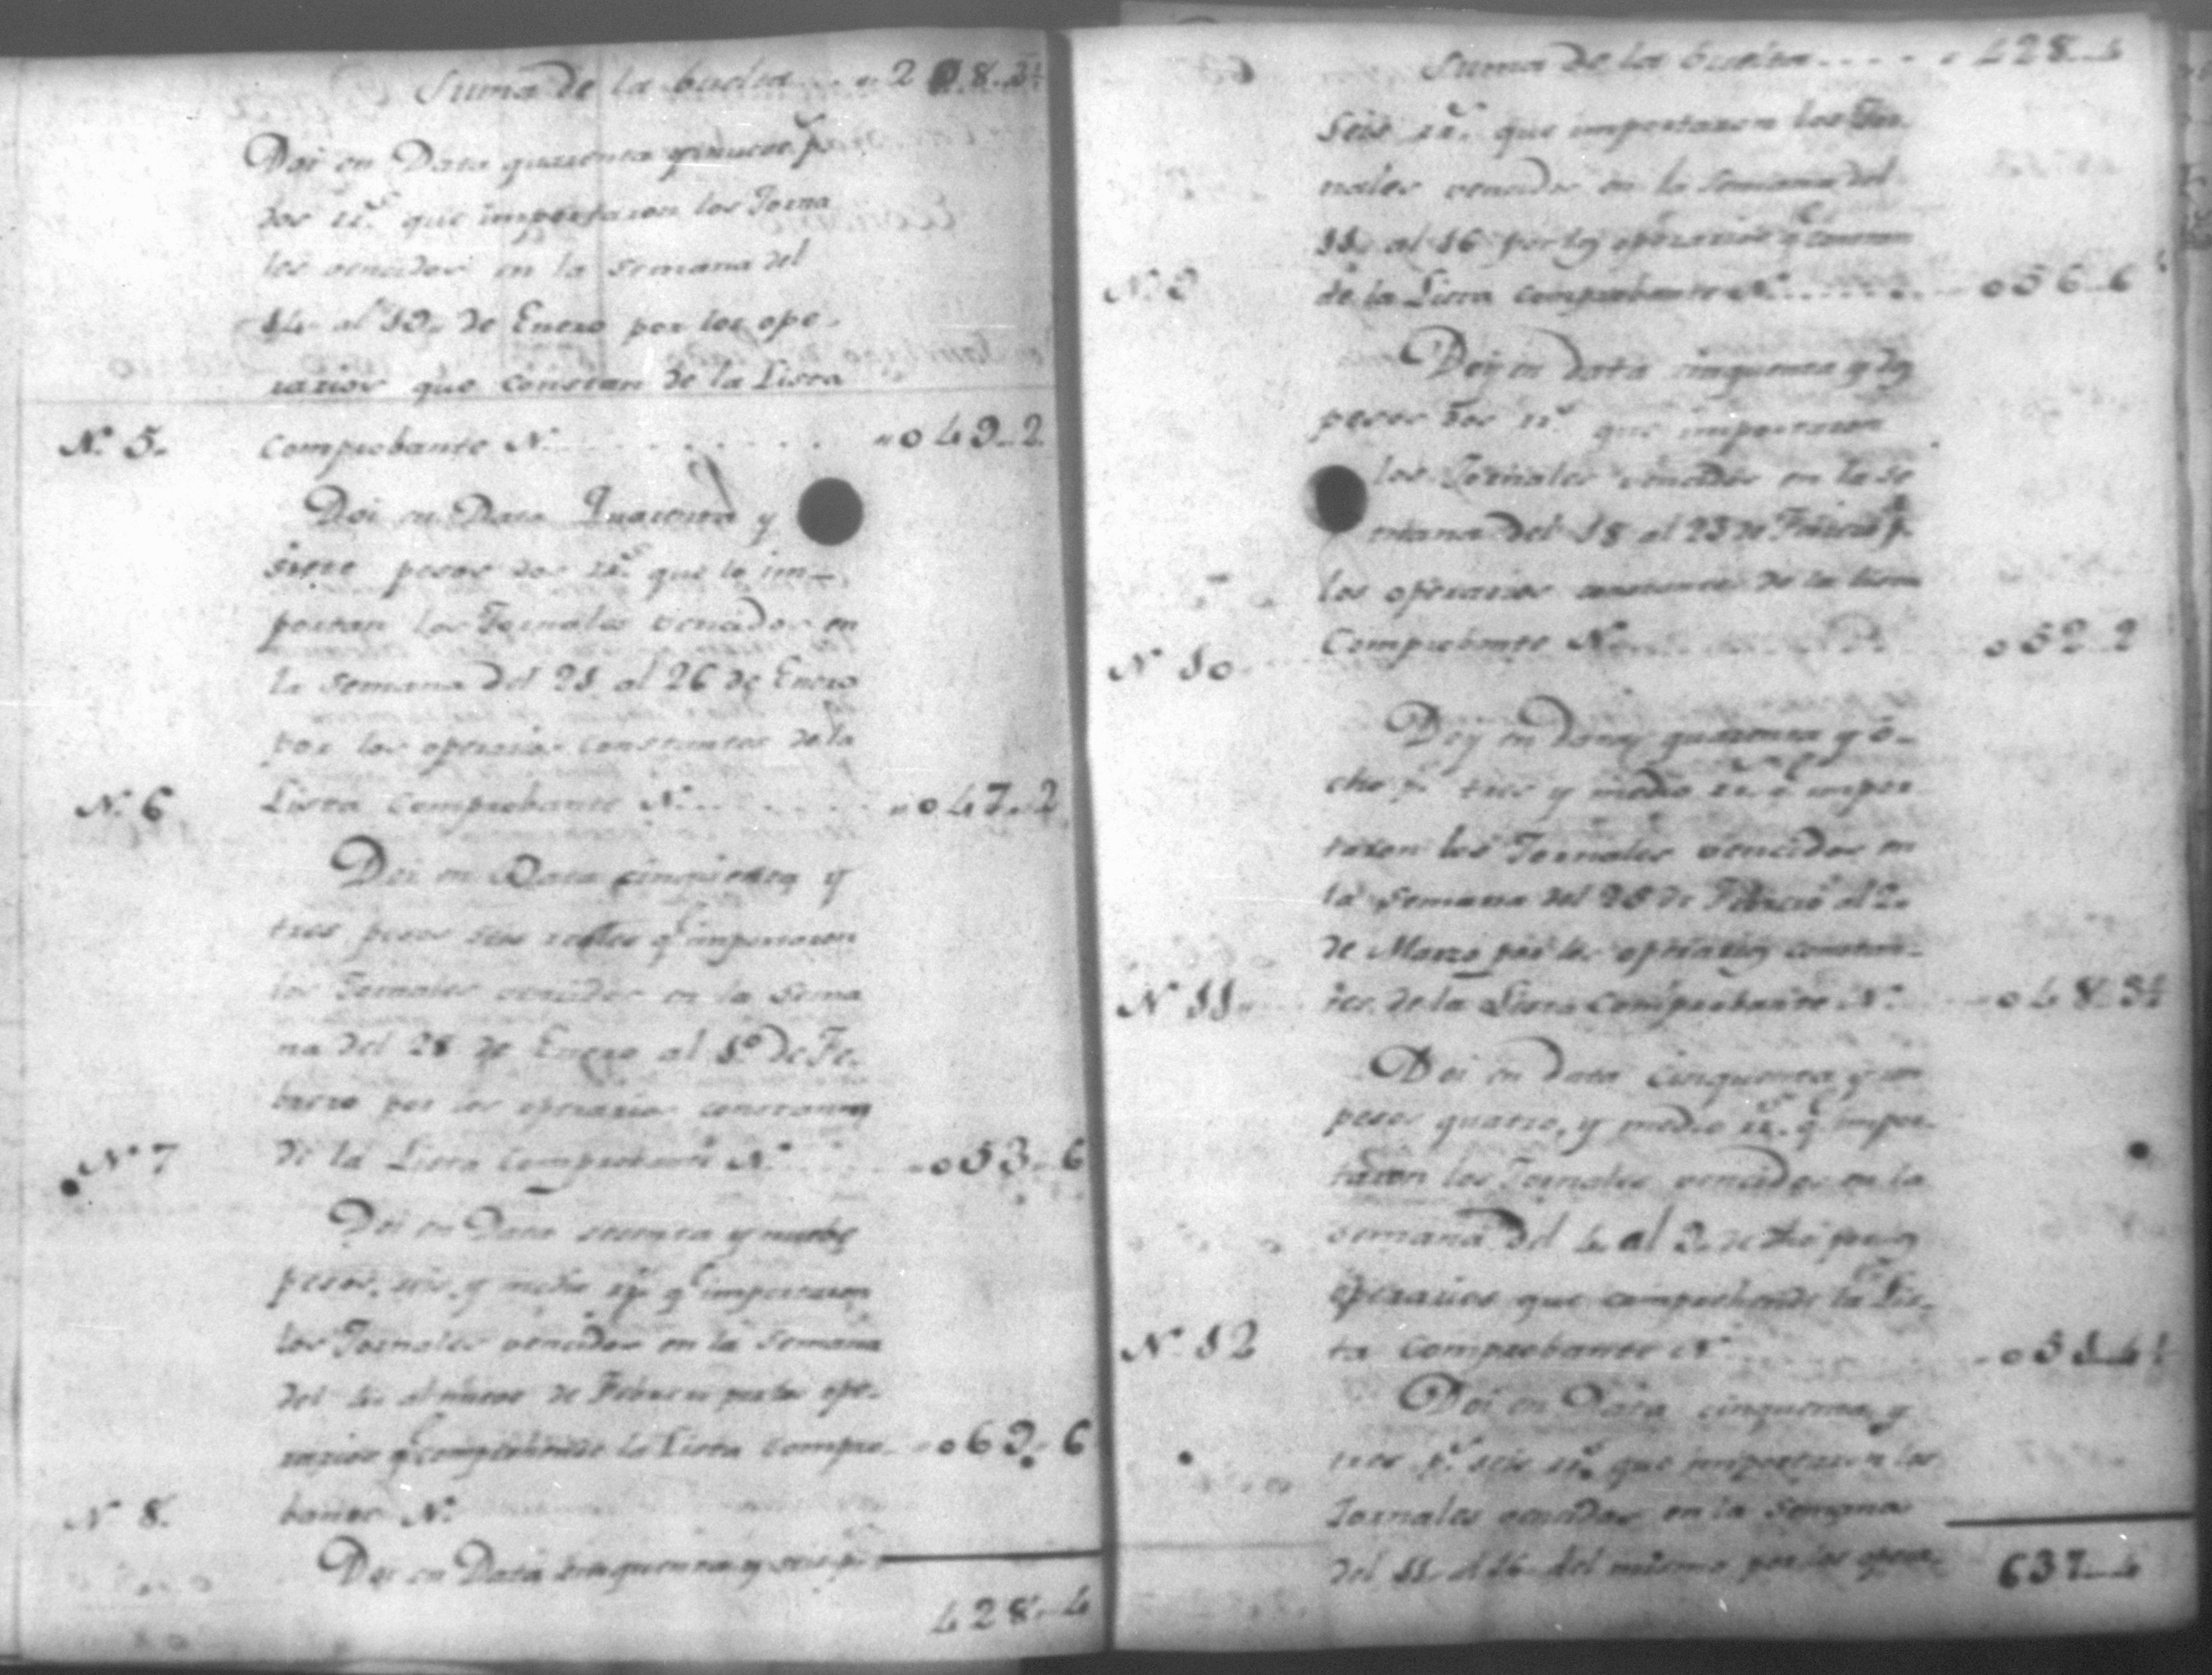 Suma de la buelta . . . 2 0 8 . 3½
Doi en Data quarenta y nueve p.s
dos rr.s que importaron los Jorna
les vencidos en la semana del
14 al 19 de Enero por los ope-
rarios que constan de la Lista
N.º 5. Comprobante N.º . . . . . . . . 049..2
Doi en Data Quarenta y
siete pesos dos rr.s que le im-
portan los Jornales vencidos en
la semana del 21 al 26 de Enero
por los operarios constantes de la
N.º 6 Lista comprobante N.º . . . . . 047..2
Doi en Data cinquenta y
tres pesos seis reales q.e importaron
los Jornales vencidos en la sema
na del 28 de Enero al 1.º de Fe-
brero por los operarios constantes
N.º 7 de la Lista Comprobante N.º . . . 053..6
Doi en Data sesenta y nuebe
pesos, seis y medio rr.s q.e importaron
los Jornales vencidos en la semana
del 4 al nueve de Febrero por los ope-
rarios q.e comprehende la Lista compro- 069..6
N.º 8. bante N.º
Doi en Data cinquenta y seis p.s
428..4
Suma de la buelta . . . . 428..4
Seis rr.s que importaron los Jor-
nales vencidos en la semana del
11 al 16 por los operarios q.e constan
N.º 9 de la Lista comprobante N.º . . . . . . 056..6
Doy en data cinquenta y dos
pesos dos rr.s que importaron
los Jornales vencidos en la se
mana del 18 al 23 de Febrero p.r
los operarios constantes de la lista
N.º 10 Comprobante N.º . . . . . . 052..2
Doy en Data quarenta y o-
cho p.s tres y medio rr.s q.e impor-
taron los Jornales vencidos en
la semana del 25 de Febrero al 2.
de Marzo por los operarios constan-
N.º 11 tes de la Lista Comprobante N.º . . 048..3½
Doi en data cinquenta y un
pesos quatro, y medio rr.s q.e impor-
taron los Jornales vencidos en la
semana del 4 al 9 de
operarios que comprehende la Lis-
N.º 12 ta Comprobante N.º . . 051..4½
Doi en Data cinquenta y
tres p.s seis rr.s que importaron los
Jornales vencidos en la semana
del 11 al 16 del mismo por los opera-
637..4